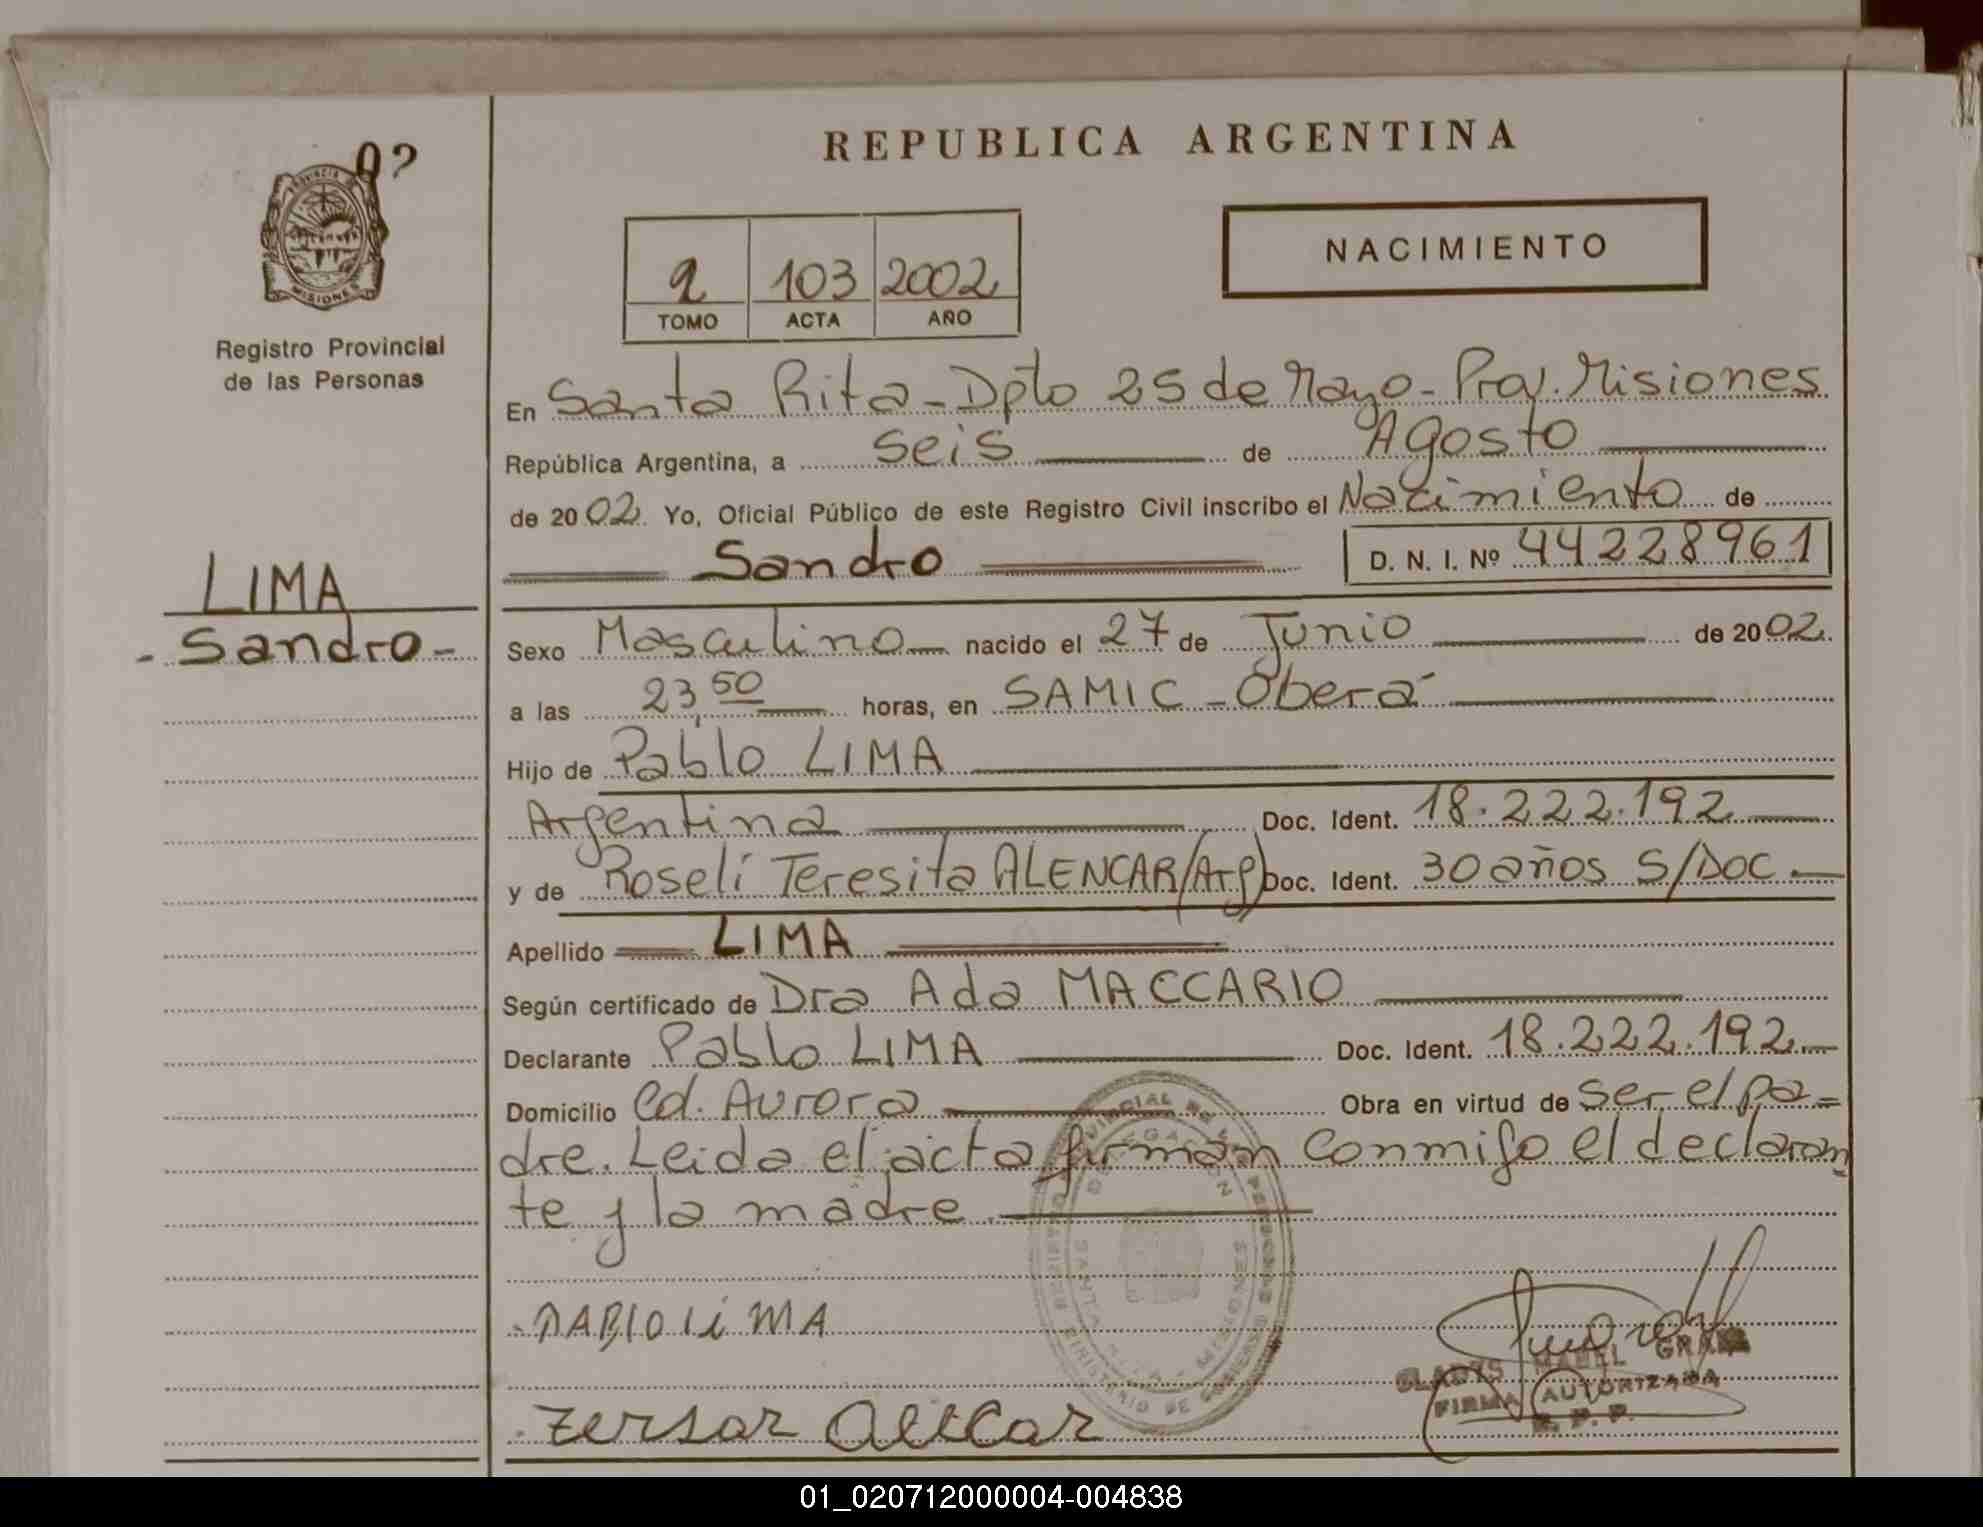 REPUBLICA ARGENTINA
PROVINCIA DE
MISIONES
Registro Provincial
de las Personas
2 103 2002
TOMO ACTA AÑO
NACIMIENTO
En Santa Rita - Dpto 25 de Mayo - Prov. Misiones
República Argentina, a seis de Agosto
de 2002. Yo, Oficial Público de este Registro Civil inscribo el Nacimiento de
Sandro D. N. I. Nº 44228961
LIMA
- Sandro -
Sexo Masculino nacido el 27 de Junio de 2002.
a las 23,50 horas, en SAMIC - Oberá
Hijo de Pablo LIMA
Argentina Doc. Ident. 18.222.192
y de Roselí Teresita ALENCAR (Arg) Doc. Ident. 30 años S/DOC
Apellido LIMA
Según certificado de Dra Ada MACCARIO
Declarante Pablo LIMA Doc. Ident. 18.222.192
Domicilio Cd. Aurora Obra en virtud de ser el pa=
dre. Leida el acta firman conmigo el declaran
te y la madre
REGISTRO PROVINCIAL DE LAS PERSONAS
MINISTERIO DE GOBIERNO
DELEGACION
SANTA RITA - MISIONES
PABLO LiMA
GLADYS MABEL
FIRMA AUTORIZADA
R. P. P.
01_020712000004-004838